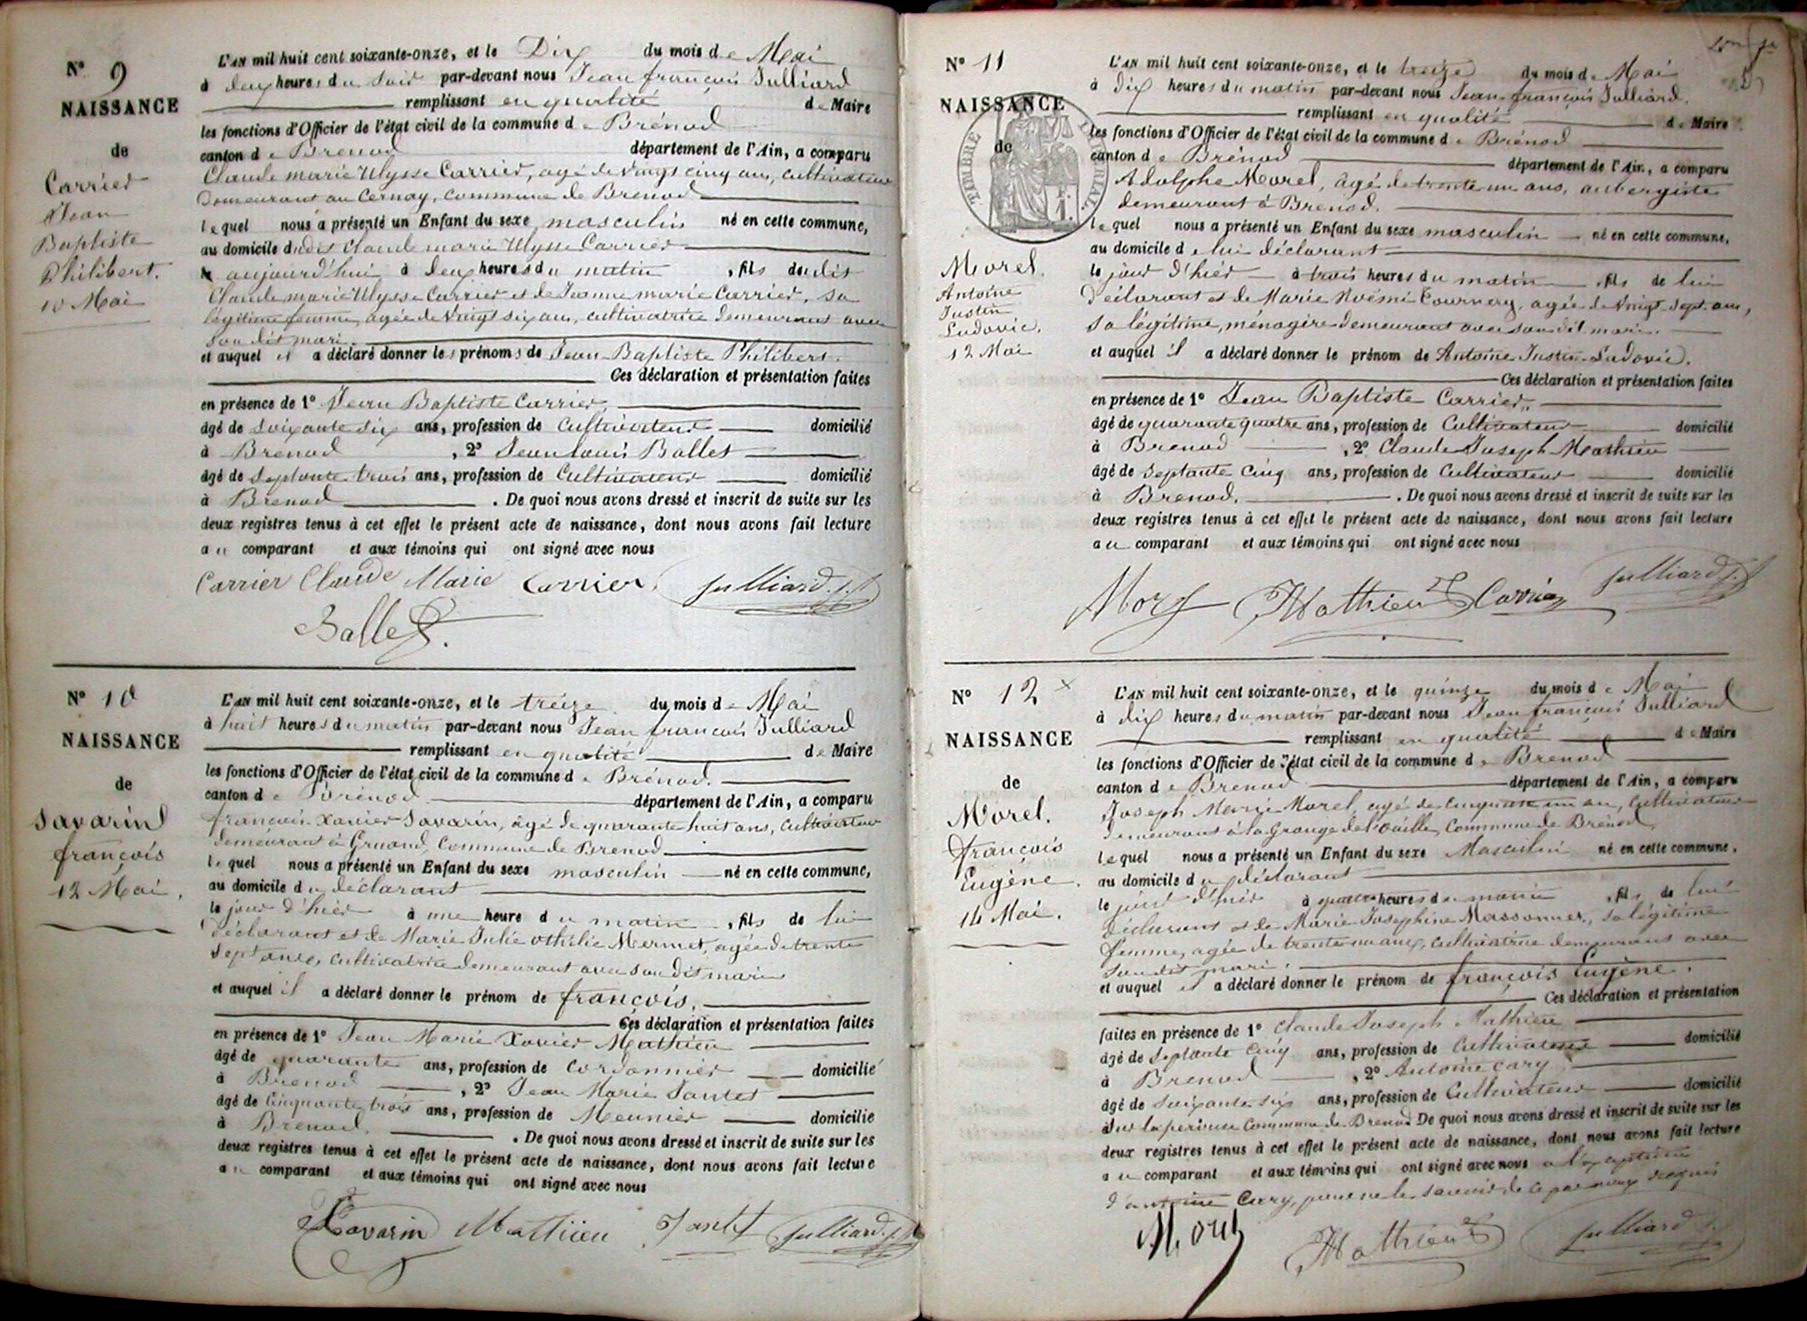 N° 9
NAISSANCE
de
Carrier
Jean
Baptiste
Philibert.
10 Mai
L'AN mil huit cent soixante-onze, et le Dix du mois de Mai
à deux heures du soir par-devant nous Jean françois Julliard
remplissant en qualité de Maire
les fonctions d'Officier de l'état civil de la commune de Brénod
canton de Brénod département de l'Ain, a comparu
Claude marie Ulysse Carrier, agé de vingt cinq ans, cultivateur
demeurant au Cernay, commune de Brenod
lequel nous a présenté un Enfant du sexe masculin né en cette commune,
au domicile dudit Claude marie Ulysse Carrier
aujourd'hui à deux heures du matin, fils dudit
Claude marie Ulysse Carrier et de Jeanne marie Carrier, sa
légitime femme, agée de vingt six ans, cultivatrice demeurant avec
son dit mari
et auquel il a déclaré donner les prénoms de Jean Baptiste Philibert.
Ces déclaration et présentation faites
en présence de 1° Jean Baptiste Carrier,
âgé de soixante six ans, profession de Cultivateur domicilié
à Brenod, 2° Jean louis Ballet
âgé de septante trois ans, profession de Cultivateur domicilié
à Brenod. De quoi nous avons dressé et inscrit de suite sur les
deux registres tenus à cet effet le présent acte de naissance, dont nous avons fait lecture
au comparant et aux témoins qui ont signé avec nous
Carrier Claude Marie Carrier Julliard
Ballet.
N° 10
NAISSANCE
de
Savarin
françois
12 Mai.
L'AN mil huit cent soixante-onze, et le treize du mois de Mai
à huit heures du matin par-devant nous Jean françois Julliard
remplissant en qualité de Maire
les fonctions d'Officier de l'état civil de la commune de Brénod.
canton de Brénod département de l'Ain, a comparu
françois Xavier Savarin, âgé de quarante huit ans, cultivateur
demeurant à Gruand, Commune de Brenod
lequel nous a présenté un Enfant du sexe masculin né en cette commune,
au domicile du déclarant
le jour d'hier à une heure du matin, fils de lui
déclarant et de Marie Julie Othélie Mermet, agée de trente
sept ans, cultivatrice demeurant avec son dit mari
et auquel il a déclaré donner le prénom de françois.
Ces déclaration et présentation faites
en présence de 1° Jean Marie Xavier Mathieu
âgé de quarante ans, profession de Cordonnier domicilié
à Brenod, 2° Jean Marie Jantet
âgé de Cinquante trois ans, profession de Meunier domicilié
à Brenod. De quoi nous avons dressé et inscrit de suite sur les
deux registres tenus à cet effet le présent acte de naissance, dont nous avons fait lecture
au comparant et aux témoins qui ont signé avec nous
Savarin Mathieu Jantet Julliard
N° 11
NAISSANCE
de
TIMBRE IMPÉRIAL
Morel.
Antoine
Justin
Ludovic.
12 Mai
L'AN mil huit cent soixante-onze, et le treize du mois de Mai
à dix heures du matin par-devant nous Jean-françois Julliard.
remplissant en qualité de Maire
les fonctions d'Officier de l'état civil de la commune de Brénod
canton de Brénod département de l'Ain, a comparu
Adolphe Morel, âgé de trente un ans, aubergiste
demeurant à Brenod.
lequel nous a présenté un Enfant du sexe masculin né en cette commune,
au domicile de lui déclarant
le jour d'hier à trois heures du matin, fils de lui
déclarant et de Marie Noémi Tournery, agée de vingt-sept ans,
sa légitime, ménagère demeurant avec son dit mari.
et auquel il a déclaré donner le prénom de Antoine Justin Ludovic.
Ces déclaration et présentation faites
en présence de 1° Jean Baptiste Carrier,
âgé de quarante quatre ans, profession de Cultivateur domicilié
à Brenod, 2° Claude Joseph Mathieu
âgé de septante cinq ans, profession de Cultivateur domicilié
à Brenod. De quoi nous avons dressé et inscrit de suite sur les
deux registres tenus à cet effet le présent acte de naissance, dont nous avons fait lecture
au comparant et aux témoins qui ont signé avec nous
Morel Mathieu Carrier Julliard
N° 12
NAISSANCE
de
Morel.
françois
Eugène.
14 Mai.
L'AN mil huit cent soixante-onze, et le quinze du mois de Mai
à dix heures du matin par-devant nous Jean françois Julliard
remplissant en qualité de Maire
les fonctions d'Officier de l'état civil de la commune de Brenod
canton de Brenod département de l'Ain, a comparu
Joseph Marie Morel, agé de cinquante un an, Cultivateur
demeurant à la Grange de l'Ouille, Commune de Brénod
lequel nous a présenté un Enfant du sexe Masculin né en cette commune,
au domicile du déclarant
le jour d'hier à quatre heures du matin, fils de lui
déclarant et de Marie Josephine Massonnet, sa légitime
femme, agée de trente un ans, cultivatrice demeurant avec
son dit mari.
et auquel il a déclaré donner le prénom de françois Eugène.
Ces déclaration et présentation
faites en présence de 1° Claude Joseph Mathieu
âgé de septante cinq ans, profession de Cultivateur domicilié
à Brenod, 2° Antoine Cary
âgé de soixante six ans, profession de Cultivateur domicilié
à sur la perrouse Commune de Brenod De quoi nous avons dressé et inscrit de suite sur les
deux registres tenus à cet effet le présent acte de naissance, dont nous avons fait lecture
au comparant et aux témoins qui ont signé avec nous à l'exception
d'antoine Cary, pour ne le savoir de ce par nous requis
Morel Mathieu Julliard